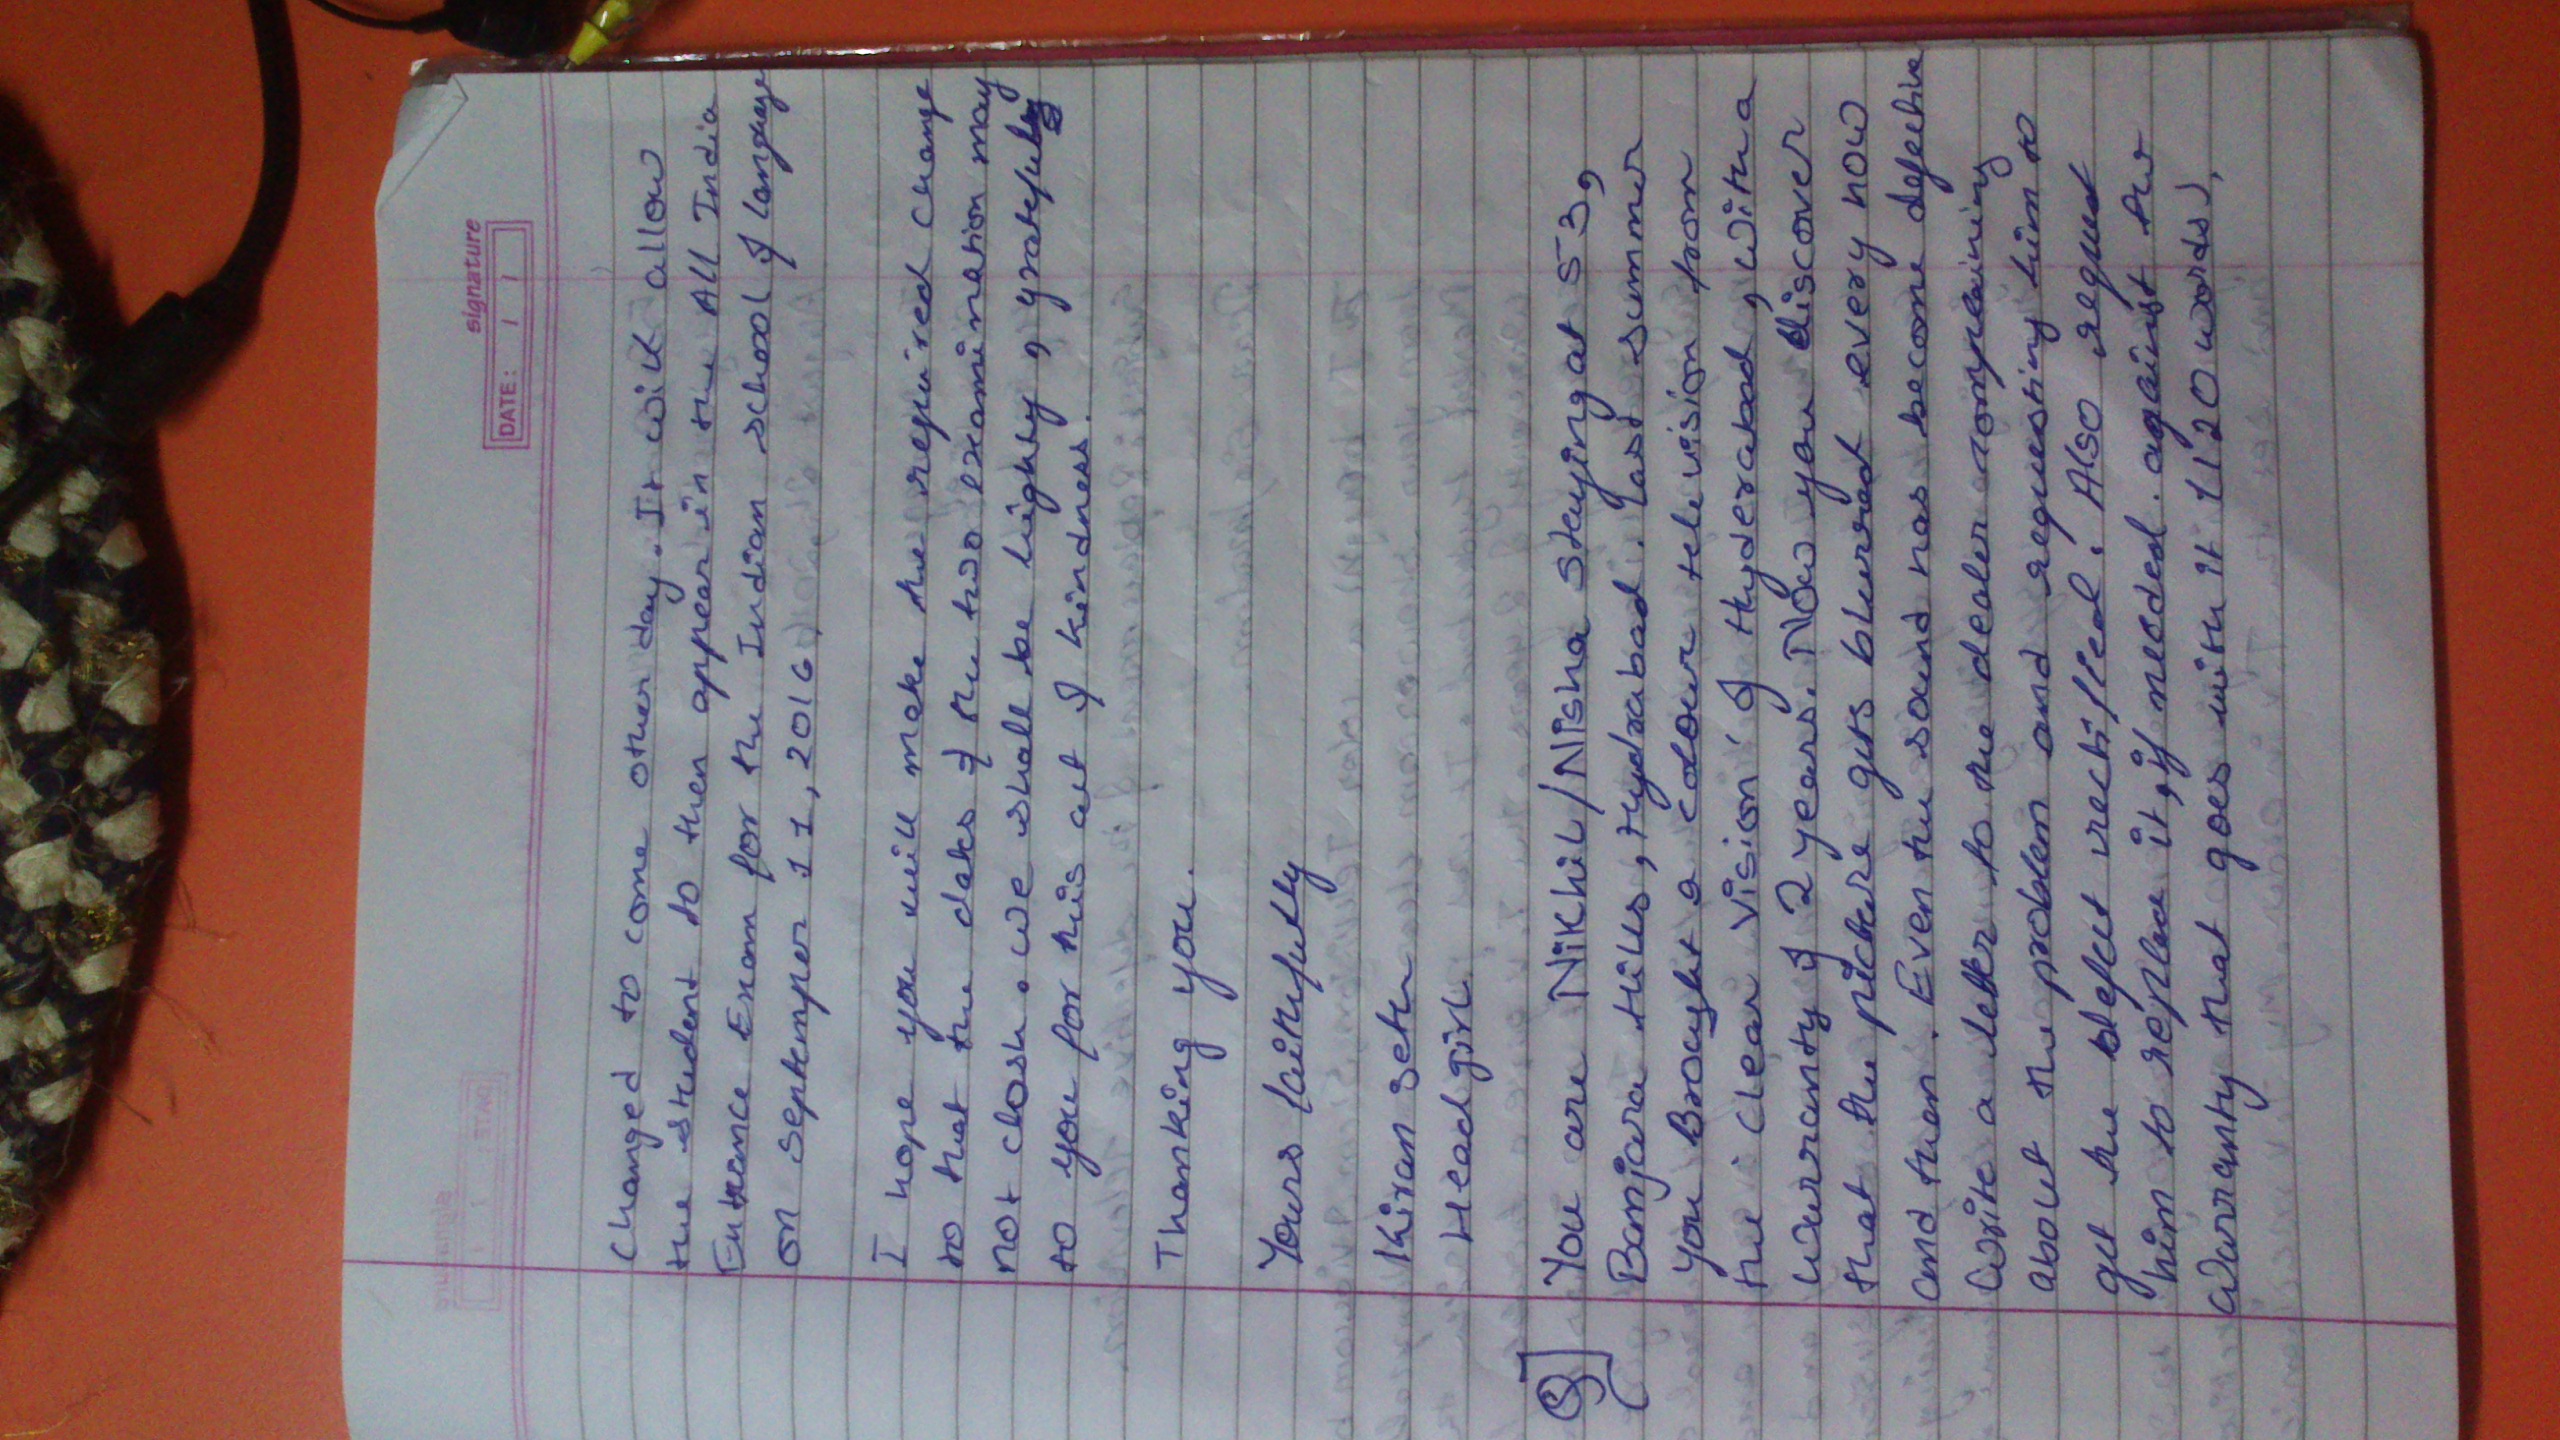 signature
DATE: / /
changed to come other day. It will allow
the student to then appear in the All India
Entrance Exam for the Indian School of language
on septemper 11, 2016.
I hope you will make the required change
so that the dates of the two examination may
not clash. We shall be highly, grateful
to you for this act of kindness.
Thanking you.
Yours faithfully
Kiran Seth
Head girl
Q] You are Nikhil/Nisha staying at 53,
Banjara Hills, Hydrabad. last summer
you Brought a colour television from
the 'Clear Vision' of Hyderabad, with a
warranty of 2 years. Now you discover
that the picture gets blurred every now
and then. Even the sound has become defective
Write a letter to the dealer complaining
about the problem and requesting him to
get the defect rectified. Also request
him to replace it, if needed. against the
warranty that goes with it (120 words).